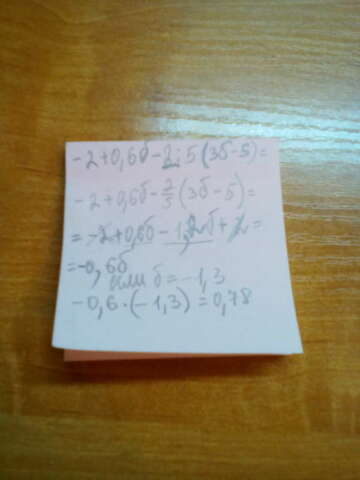 -2+0,6б-2:5(3б-5)=
-2+0,6б-2/5(3б-5)=
=-2+0,6б-1,2б+2=
=-0,6б
если б=-1,3
-0,6·(-1,3)=0,78